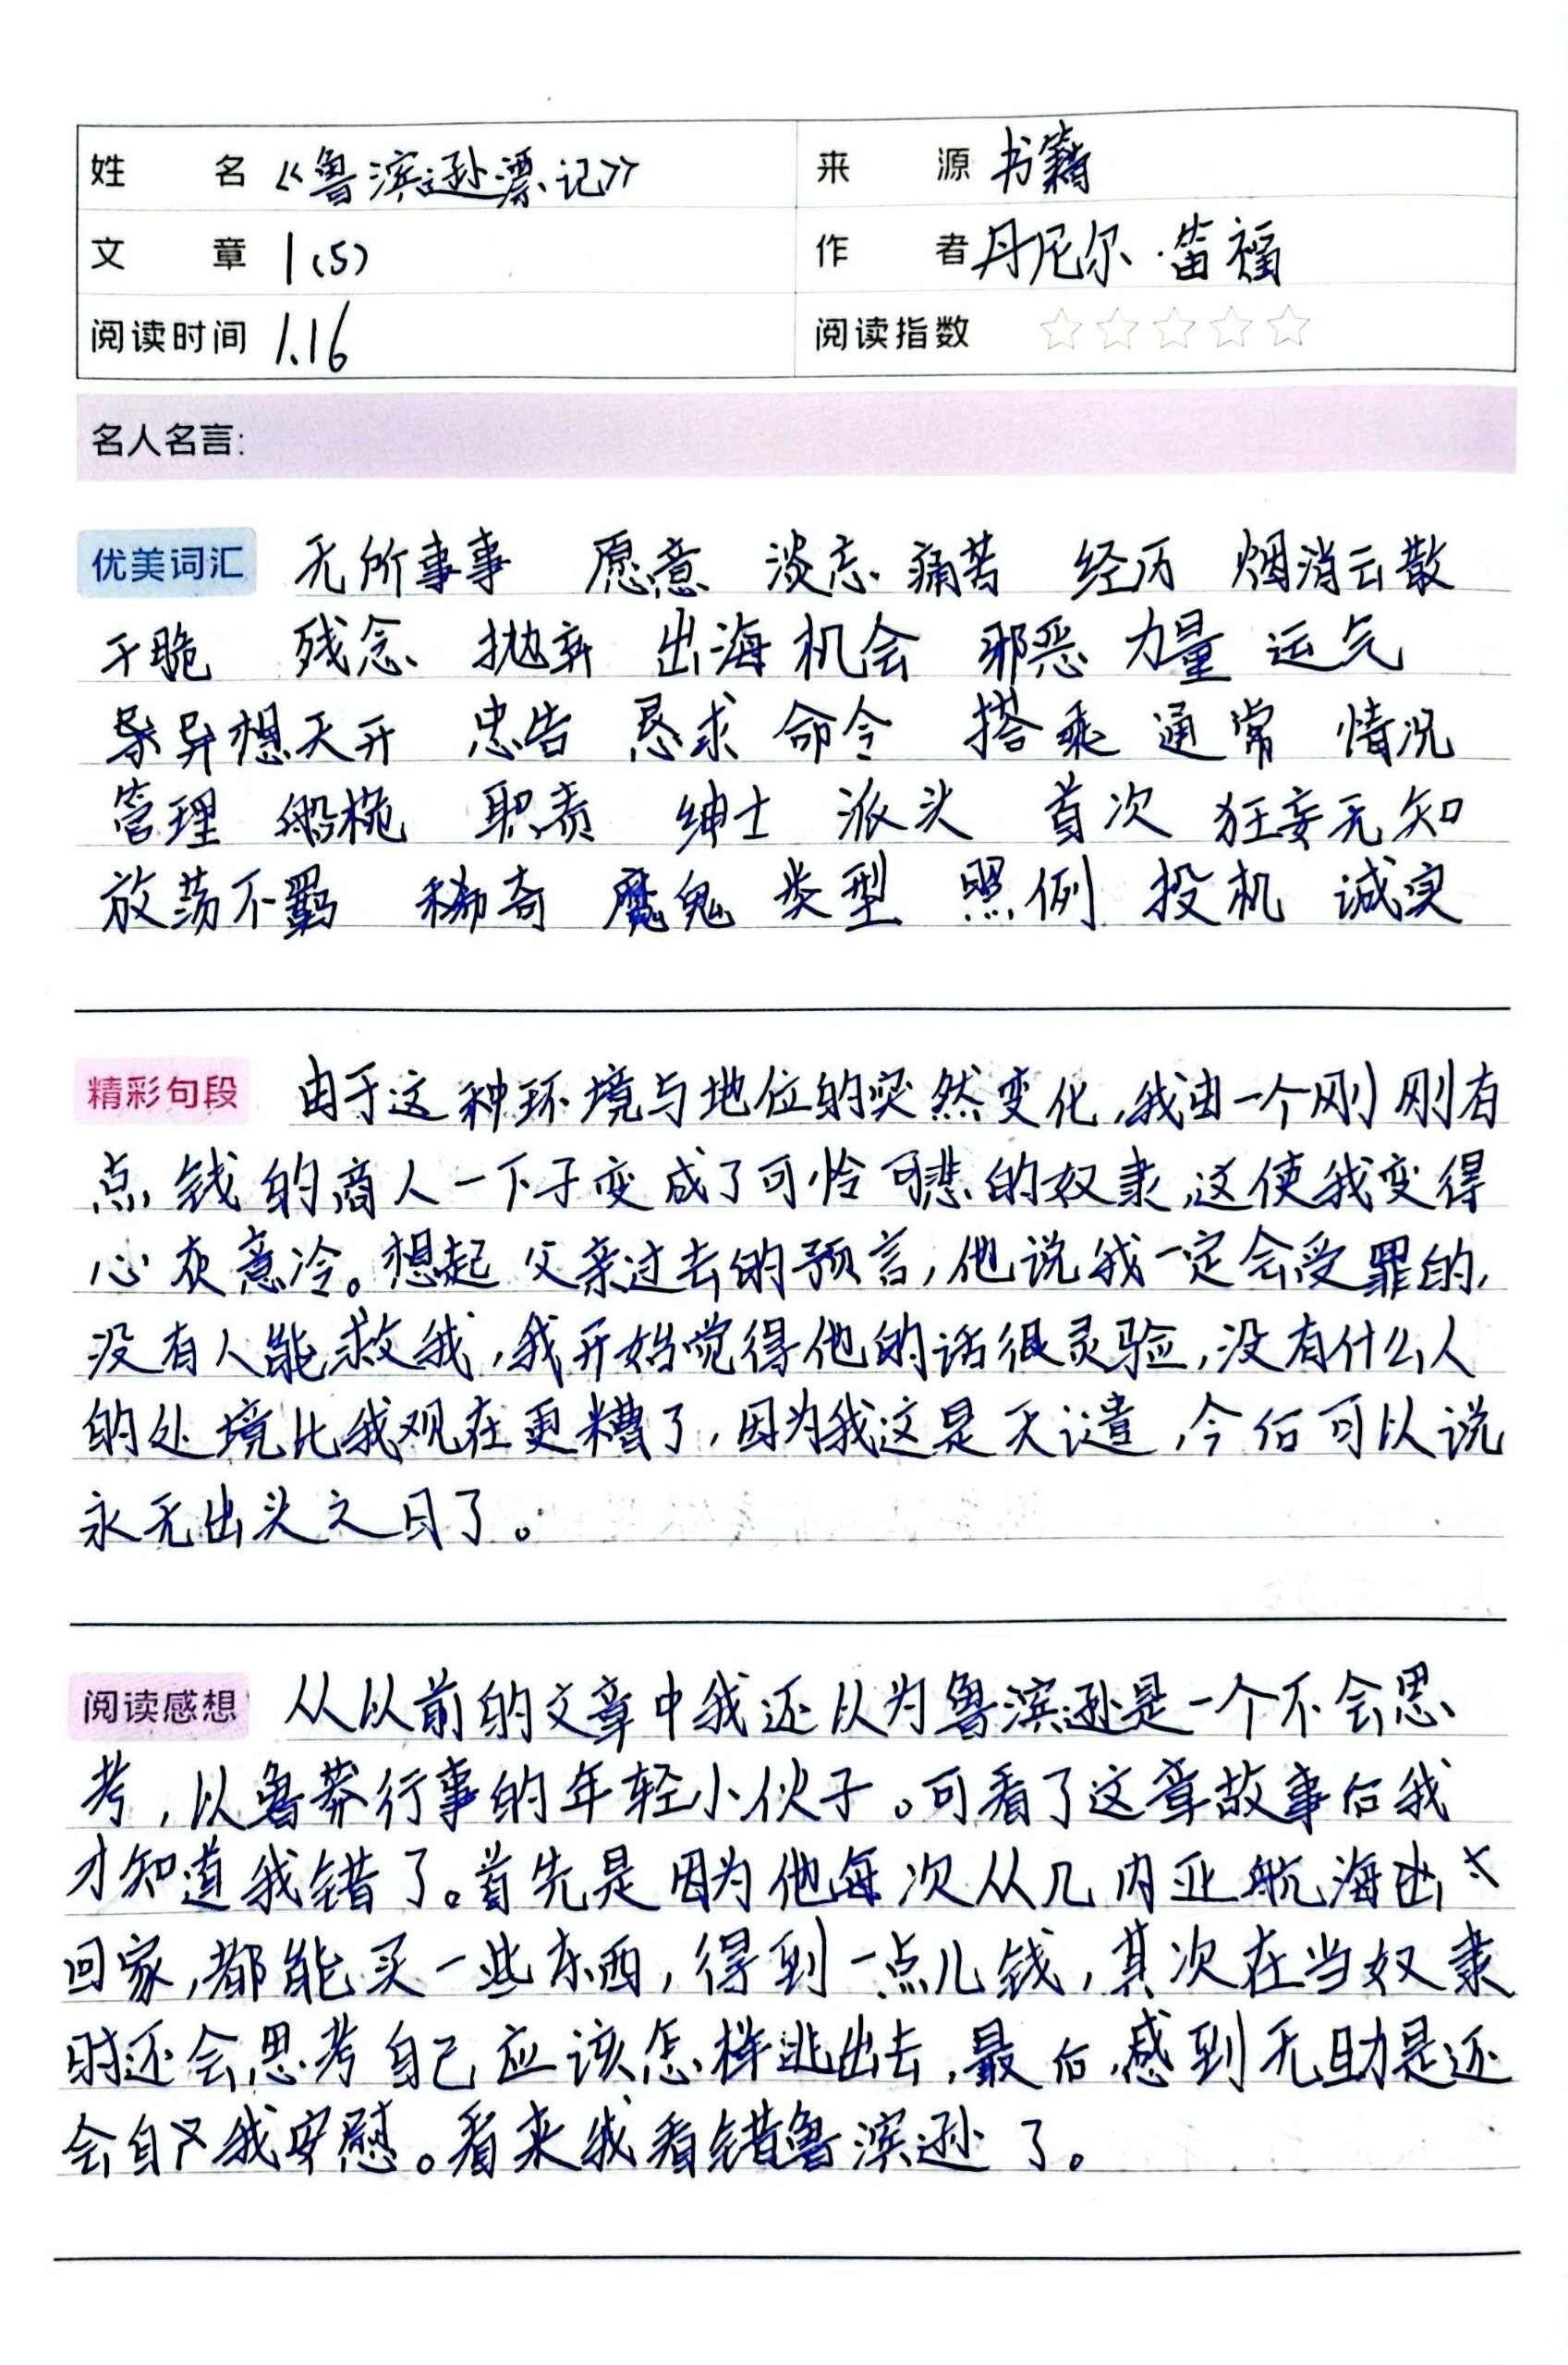 姓名 《鲁滨逊漂记》 来源 书籍
文章 1(5) 作者 丹尼尔·笛福
阅读时间 1.16 阅读指数 ☆☆☆☆☆
名人名言:
优美词汇 无所事事 愿意 淡忘 痛苦 经历 烟消云散
干脆 残念 抛弃 出海 机会 邪恶 力量 运气
异想天开 忠告 恳求 命令 搭乘 通常 情况
管理 船桅 职责 绅士 派头 首次 狂妄无知
放荡不羁 稀奇 魔鬼 类型 照例 投机 诚实
精彩句段 由于这种环境与地位的突然变化,我由一个刚刚有
点钱的商人一下子变成了可怜可悲的奴隶,这使我变得
心灰意冷。想起父亲过去的预言,他说我一定会受罪的,
没有人能救我,我开始觉得他的话很灵验,没有什么人
的处境比我观在更糟了,因为我这是天谴,今后可以说
永无出头之日了。
阅读感想 从以前的文章中我还以为鲁滨逊是一个不会思
考,以鲁莽行事的年轻小伙子。可看了这章故事后我
才知道我错了。首先是因为他每次从几内亚航海出
回家,都能买一些东西,得到一点儿钱,其次在当奴隶
时还会思考自己应该怎样逃出去,最后,感到无助是还
会自我安慰。看来我看错鲁滨逊了。